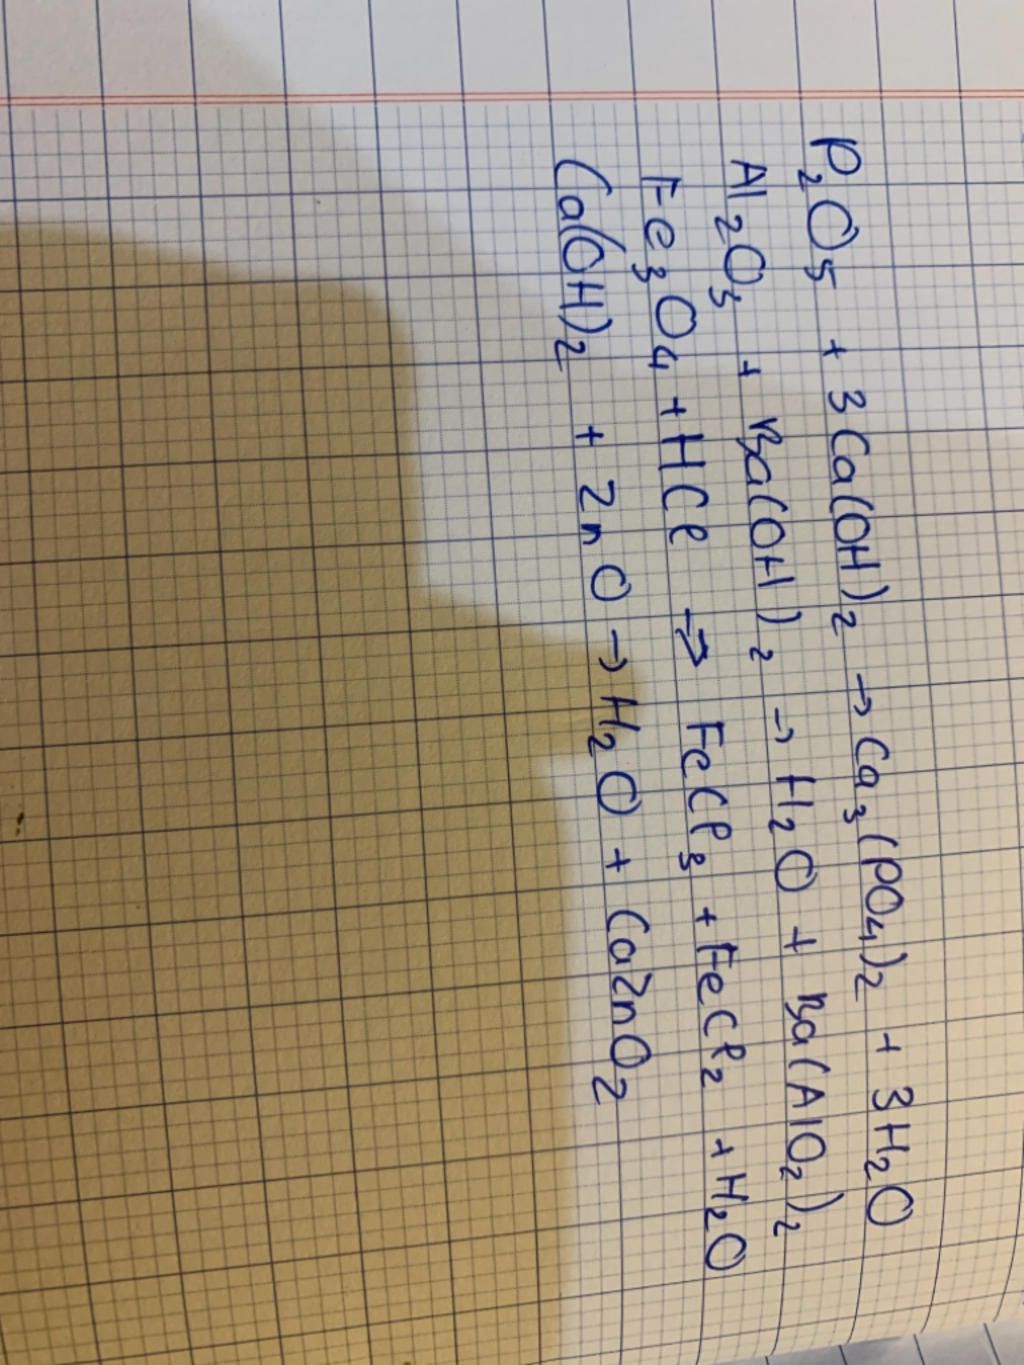 P₂O₅ + 3Ca(OH)₂ → Ca₃(PO₄)₂ + 3H₂O
Al₂O₃ + Ba(OH)₂ → H₂O + Ba(AlO₂)₂
Fe₃O₄ + HCl → FeCl₃ + FeCl₂ + H₂O
Ca(OH)₂ + ZnO → H₂O + CaZnO₂